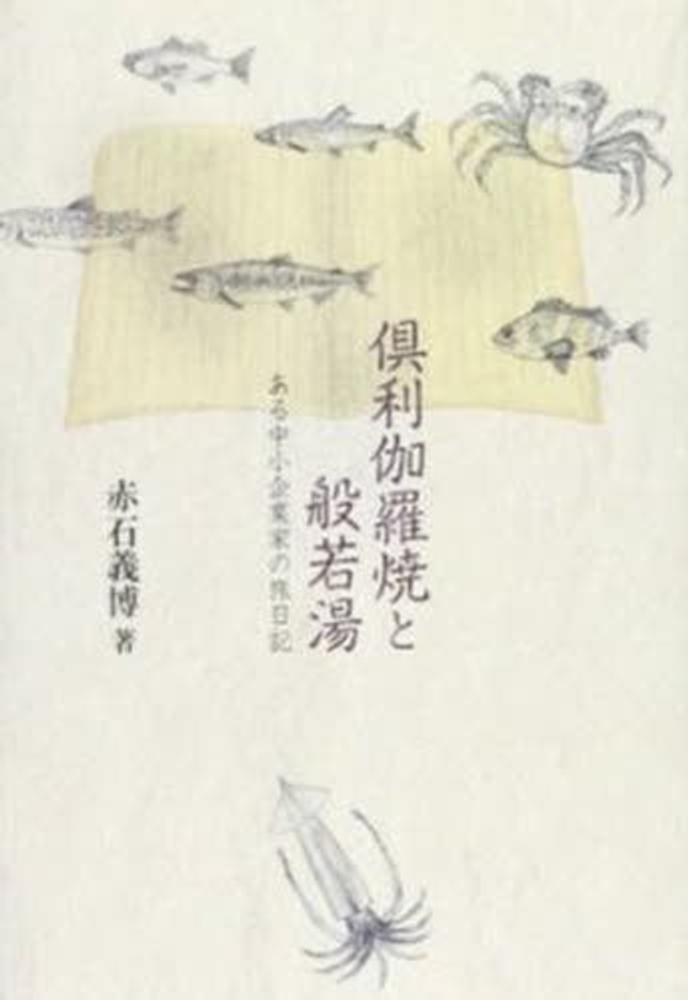 倶利伽羅焼と
般若湯
ある中小企業家の旅日記
赤石義博 著